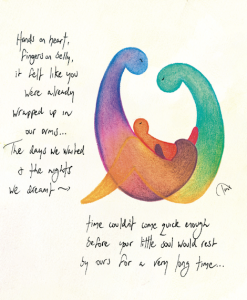 Hands on heart,
fingers on belly,
it felt like you
were already
wrapped up in
our arms...
The days we waited
& the nights
we dreamt ~
time couldn't come quick enough
before your little soul would rest
by ours for a very long time...